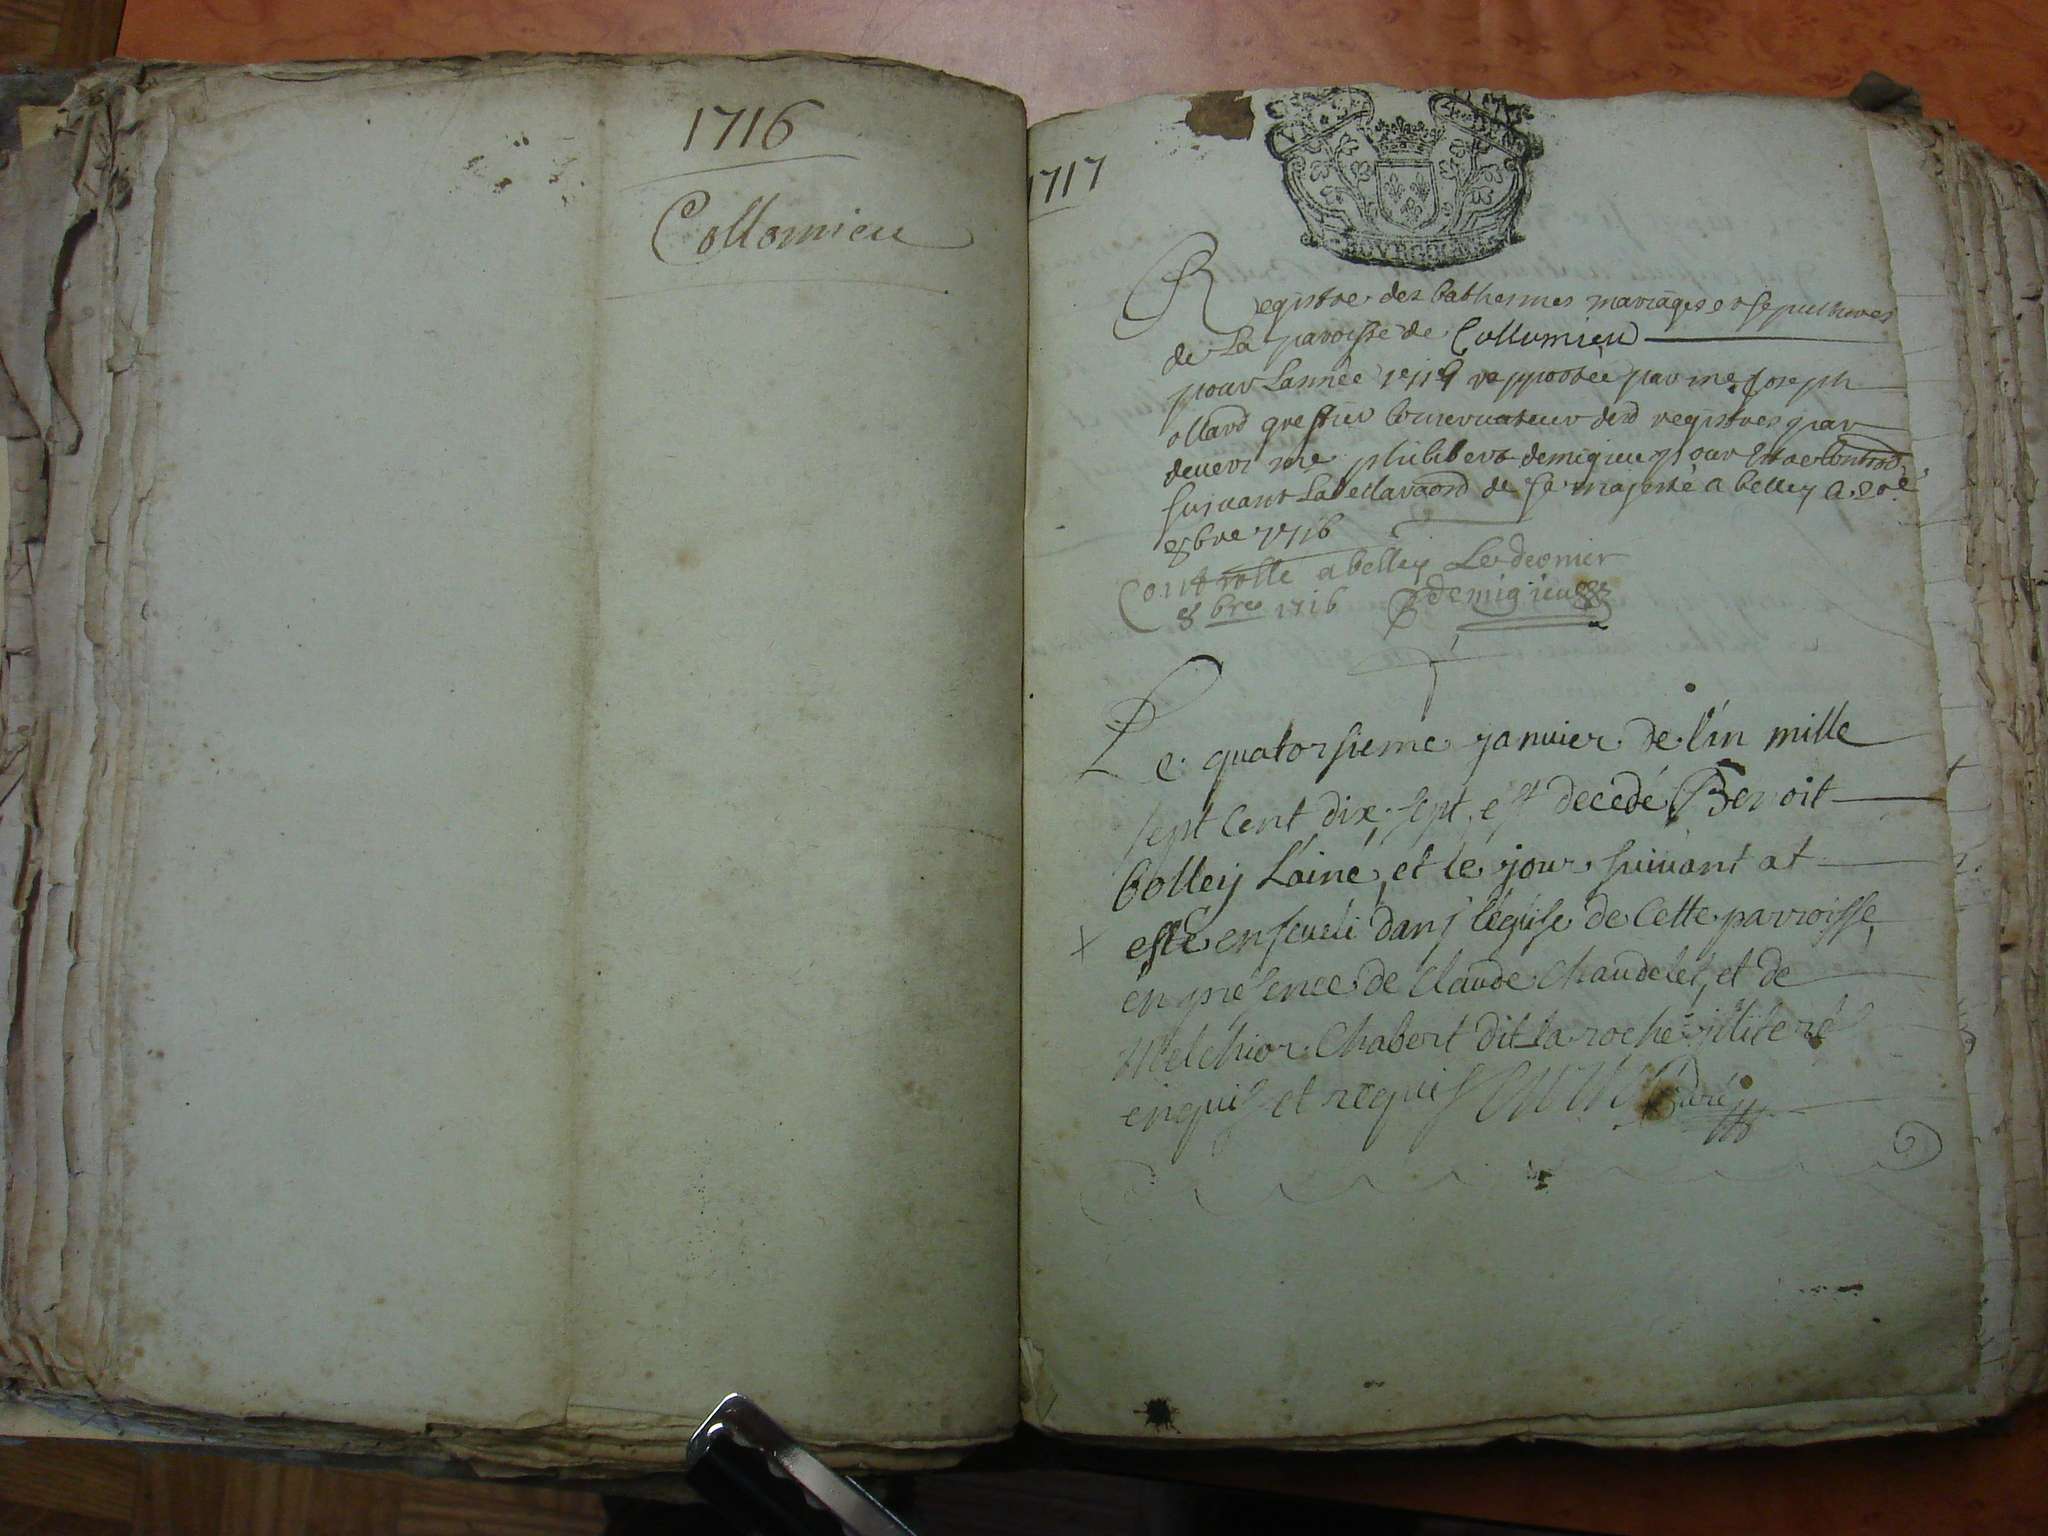 1716
Collomieu
1717
Registre des bathesmes mariages et sepultures
de La paroisse de Collomieu
pour Lannee 1717 rapportée par me Joseph
ollard greffier Conservateur desd registres par
devers me philibert demigieu pour Estre Controd
suivant La declaraõn de sa majesté a belley
8bre 1716
Controlle a belley Le dernier
8 bre 1716 demigieu
Le quatorsieme janvier de l'an mille
sept Cent dix sept est decedé Benoit
bolley L'ainé, et le jour suivant at
esté enseveli dans l'eglise de Cette parroisse
en presence de Claude Chaudelet, et de
Melchior Chabert dit la roche illiteré
enquis et requis Curé